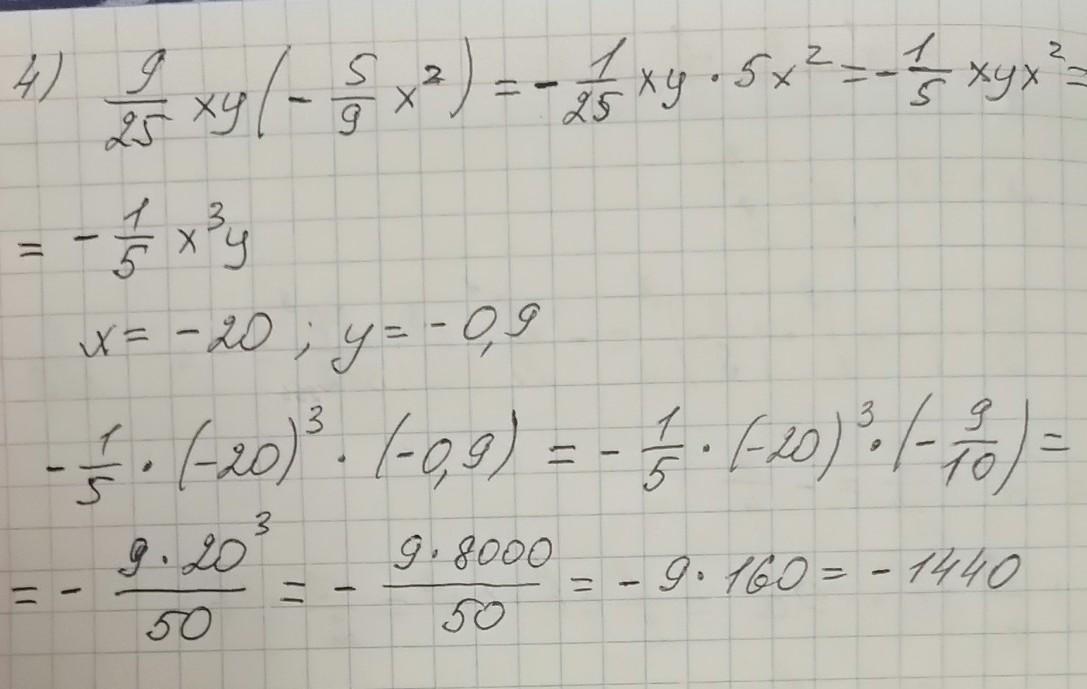 4) 9/25 xy(-5/9 x²) = -1/25 xy · 5x² = -1/5 xyx² =
= -1/5 x³y
x = -20 ; y = -0,9
-1/5 · (-20)³ · (-0,9) = -1/5 · (-20)³ · (-9/10) =
= - 9·20³/50 = - 9·8000/50 = -9·160 = -1440